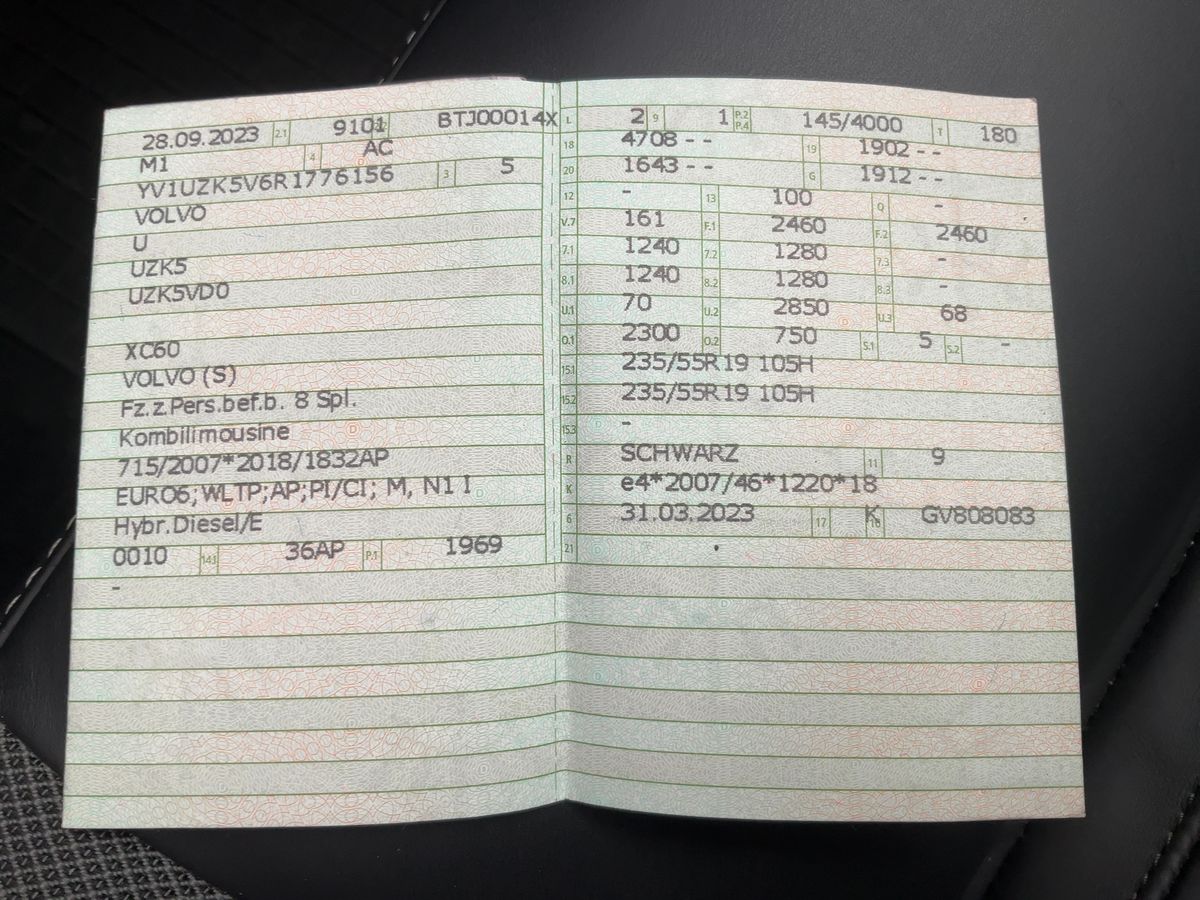 28.09.2023 2.1 9101 BTJ00014X
M1 4 AC
YV1UZK5V6R1776156 3 5
VOLVO
U
UZK5
UZK5VD0
XC60
VOLVO (S)
Fz.z.Pers.bef.b. 8 Spl.
Kombilimousine
715/2007*2018/1832AP
EURO6;WLTP;AP;PI/CI; M, N1 I
Hybr.Diesel/E
0010 14.1 36AP P.1 1969
-
L 2 9 1 P.2 P.4 145/4000 T 180
18 4708 - - 19 1902 - -
20 1643 - - G 1912 - -
12 - 13 100 Q -
V.7 161 F.1 2460 F.2 2460
7.1 1240 7.2 1280 7.3 -
8.1 1240 8.2 1280 8.3 -
U.1 70 U.2 2850 U.3 68
O.1 2300 O.2 750 S.1 5 S.2 -
15.1 235/55R19 105H
15.2 235/55R19 105H
15.3 -
R SCHWARZ 11 9
K e4*2007/46*1220*18
6 31.03.2023 17 K 16 GV808083
21